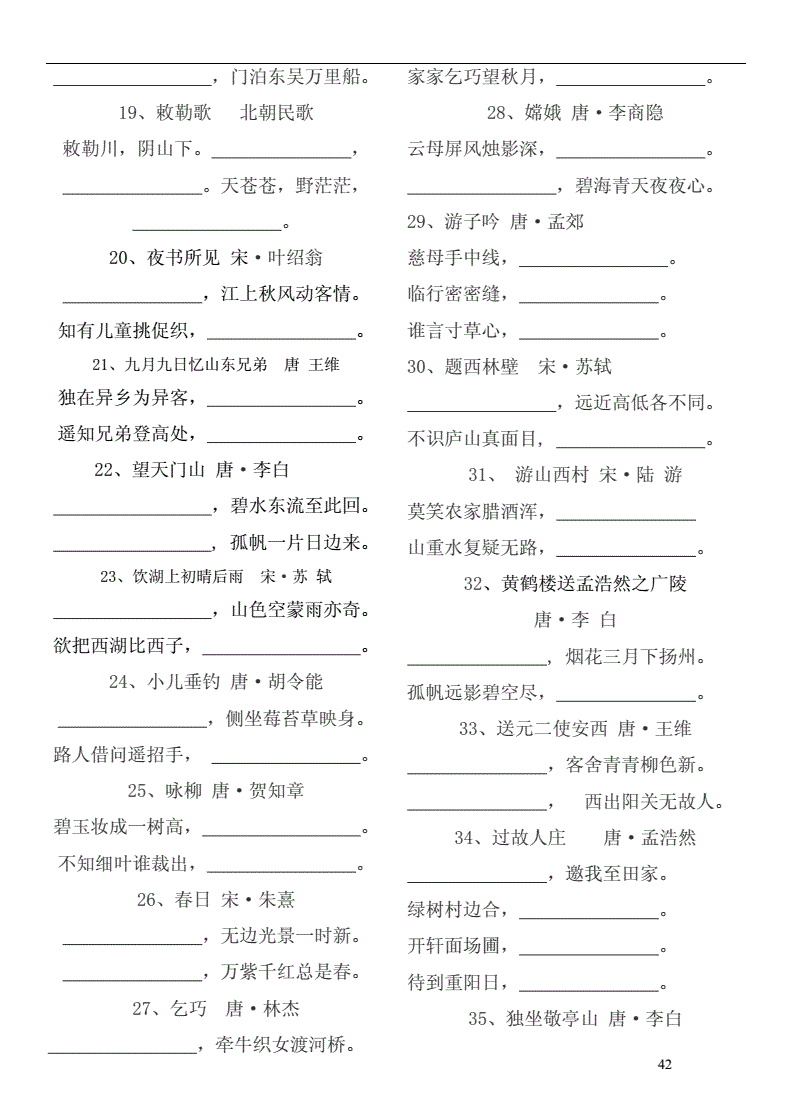 ________________，门泊东吴万里船。
19、敕勒歌   北朝民歌
敕勒川，阴山下。_______________，
_______________。天苍苍，野茫茫，
________________。
20、夜书所见 宋·叶绍翁
_______________，江上秋风动客情。
知有儿童挑促织，________________。
21、九月九日忆山东兄弟  唐 王维
独在异乡为异客，________________。
遥知兄弟登高处，________________。
22、望天门山 唐·李白
_________________，碧水东流至此回。
_________________，孤帆一片日边来。
23、饮湖上初晴后雨  宋·苏 轼
_________________，山色空蒙雨亦奇。
欲把西湖比西子，_________________。
24、小儿垂钓 唐·胡令能
________________，侧坐莓苔草映身。
路人借问遥招手， ________________。
25、咏柳 唐·贺知章
碧玉妆成一树高，_________________。
不知细叶谁裁出，________________。
26、春日 宋·朱熹
_______________，无边光景一时新。
_______________，万紫千红总是春。
27、乞巧  唐·林杰
________________，牵牛织女渡河桥。
家家乞巧望秋月，________________。
28、嫦娥 唐·李商隐
云母屏风烛影深，________________。
________________，碧海青天夜夜心。
29、游子吟 唐·孟郊
慈母手中线，________________。
临行密密缝，_______________。
谁言寸草心，_______________。
30、题西林壁  宋·苏轼
________________，远近高低各不同。
不识庐山真面目，________________。
31、 游山西村 宋·陆 游
莫笑农家腊酒浑，_______________
山重水复疑无路，_______________。
32、黄鹤楼送孟浩然之广陵
唐·李 白
_______________，烟花三月下扬州。
孤帆远影碧空尽，_______________。
33、送元二使安西 唐·王维
_______________，客舍青青柳色新。
_______________，  西出阳关无故人。
34、过故人庄    唐·孟浩然
_______________，邀我至田家。
绿树村边合，_______________。
开轩面场圃，_______________。
待到重阳日，_______________。
35、独坐敬亭山 唐·李白
42